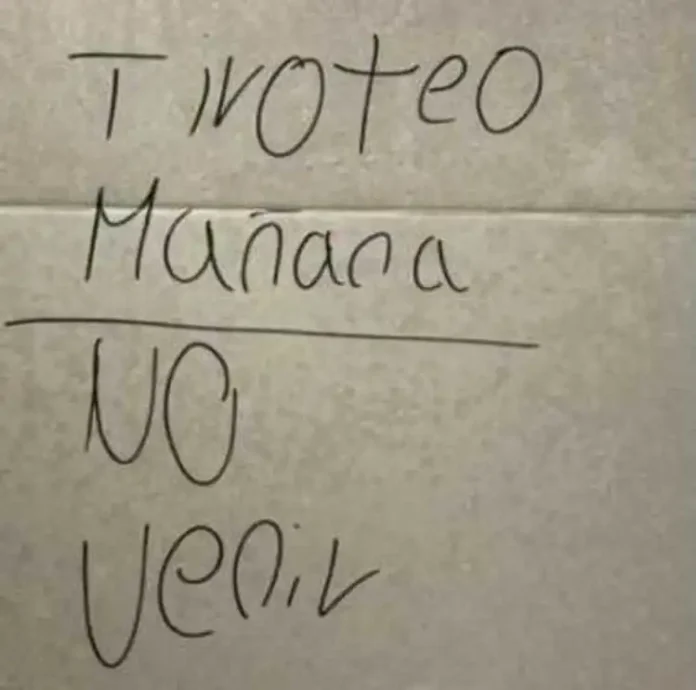 Tiroteo
Mañana
NO
venir